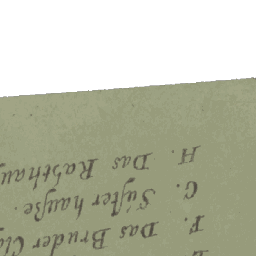 F. Das Bruder Clo
G. Süſter hauße.
H. Das Rahthau